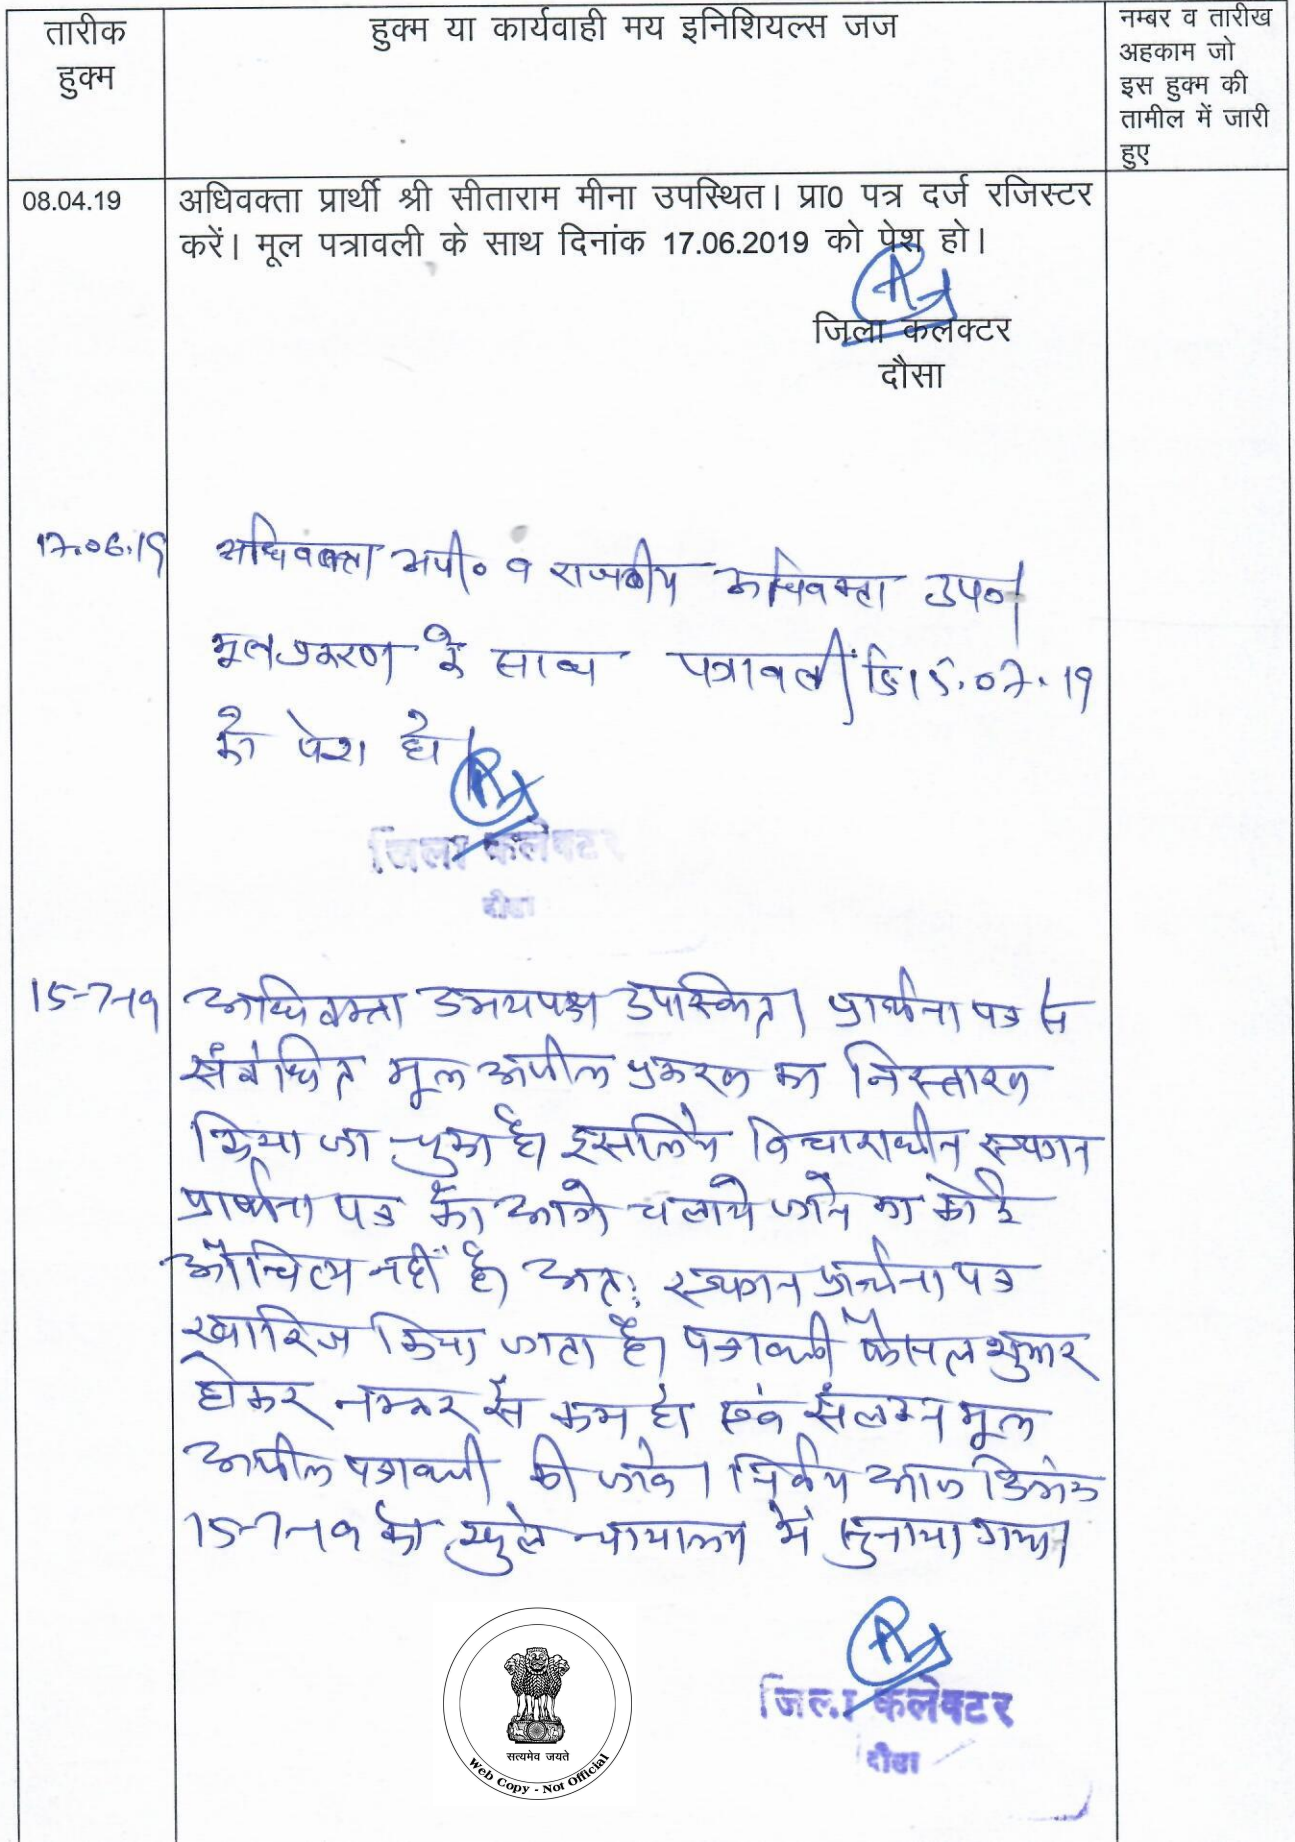 तारीक
हुक्म
हुक्म या कार्यवाही मय इनिशियल्स जज
नम्बर व तारीख
अहकाम जो
इस हुक्म की
तामील में जारी
हुए
08.04.19
अधिवक्ता प्रार्थी श्री सीताराम मीना उपस्थित। प्रा0 पत्र दर्ज रजिस्टर
करें। मूल पत्रावली के साथ दिनांक 17.06.2019 को पेश हो।
जिला कलक्टर
दौसा
17.06.19
अधिवक्ता अपी० व राजकीय अधिवक्ता उप०।
मूल प्रकरण के साथ पत्रावली दि 15.07.19
को पेश हो।
जिला कलेक्टर
दौसा
15-7-19
अधिवक्ता उभयपक्ष उपस्थित। प्रार्थना पत्र से
संबंधित मूल अपील प्रकरण का निस्तारण
किया जा चुका है। इसलिये विचाराधीन स्थगन
प्रार्थना पत्र को आगे चलाये जाने का कोई
औचित्य नहीं है। अतः स्थगन प्रार्थना पत्र
खारिज किया जाता है। पत्रावली फैसल शुमार
होकर नम्बर से कम हो एवं संलग्न मूल
अपील पत्रावली की जावे। निर्णय आज दिनांक
15-7-19 को खुले न्यायालय में सुनाया गया।
जिला कलेक्टर
दौसा
सत्यमेव जयते
Web Copy - Not Official